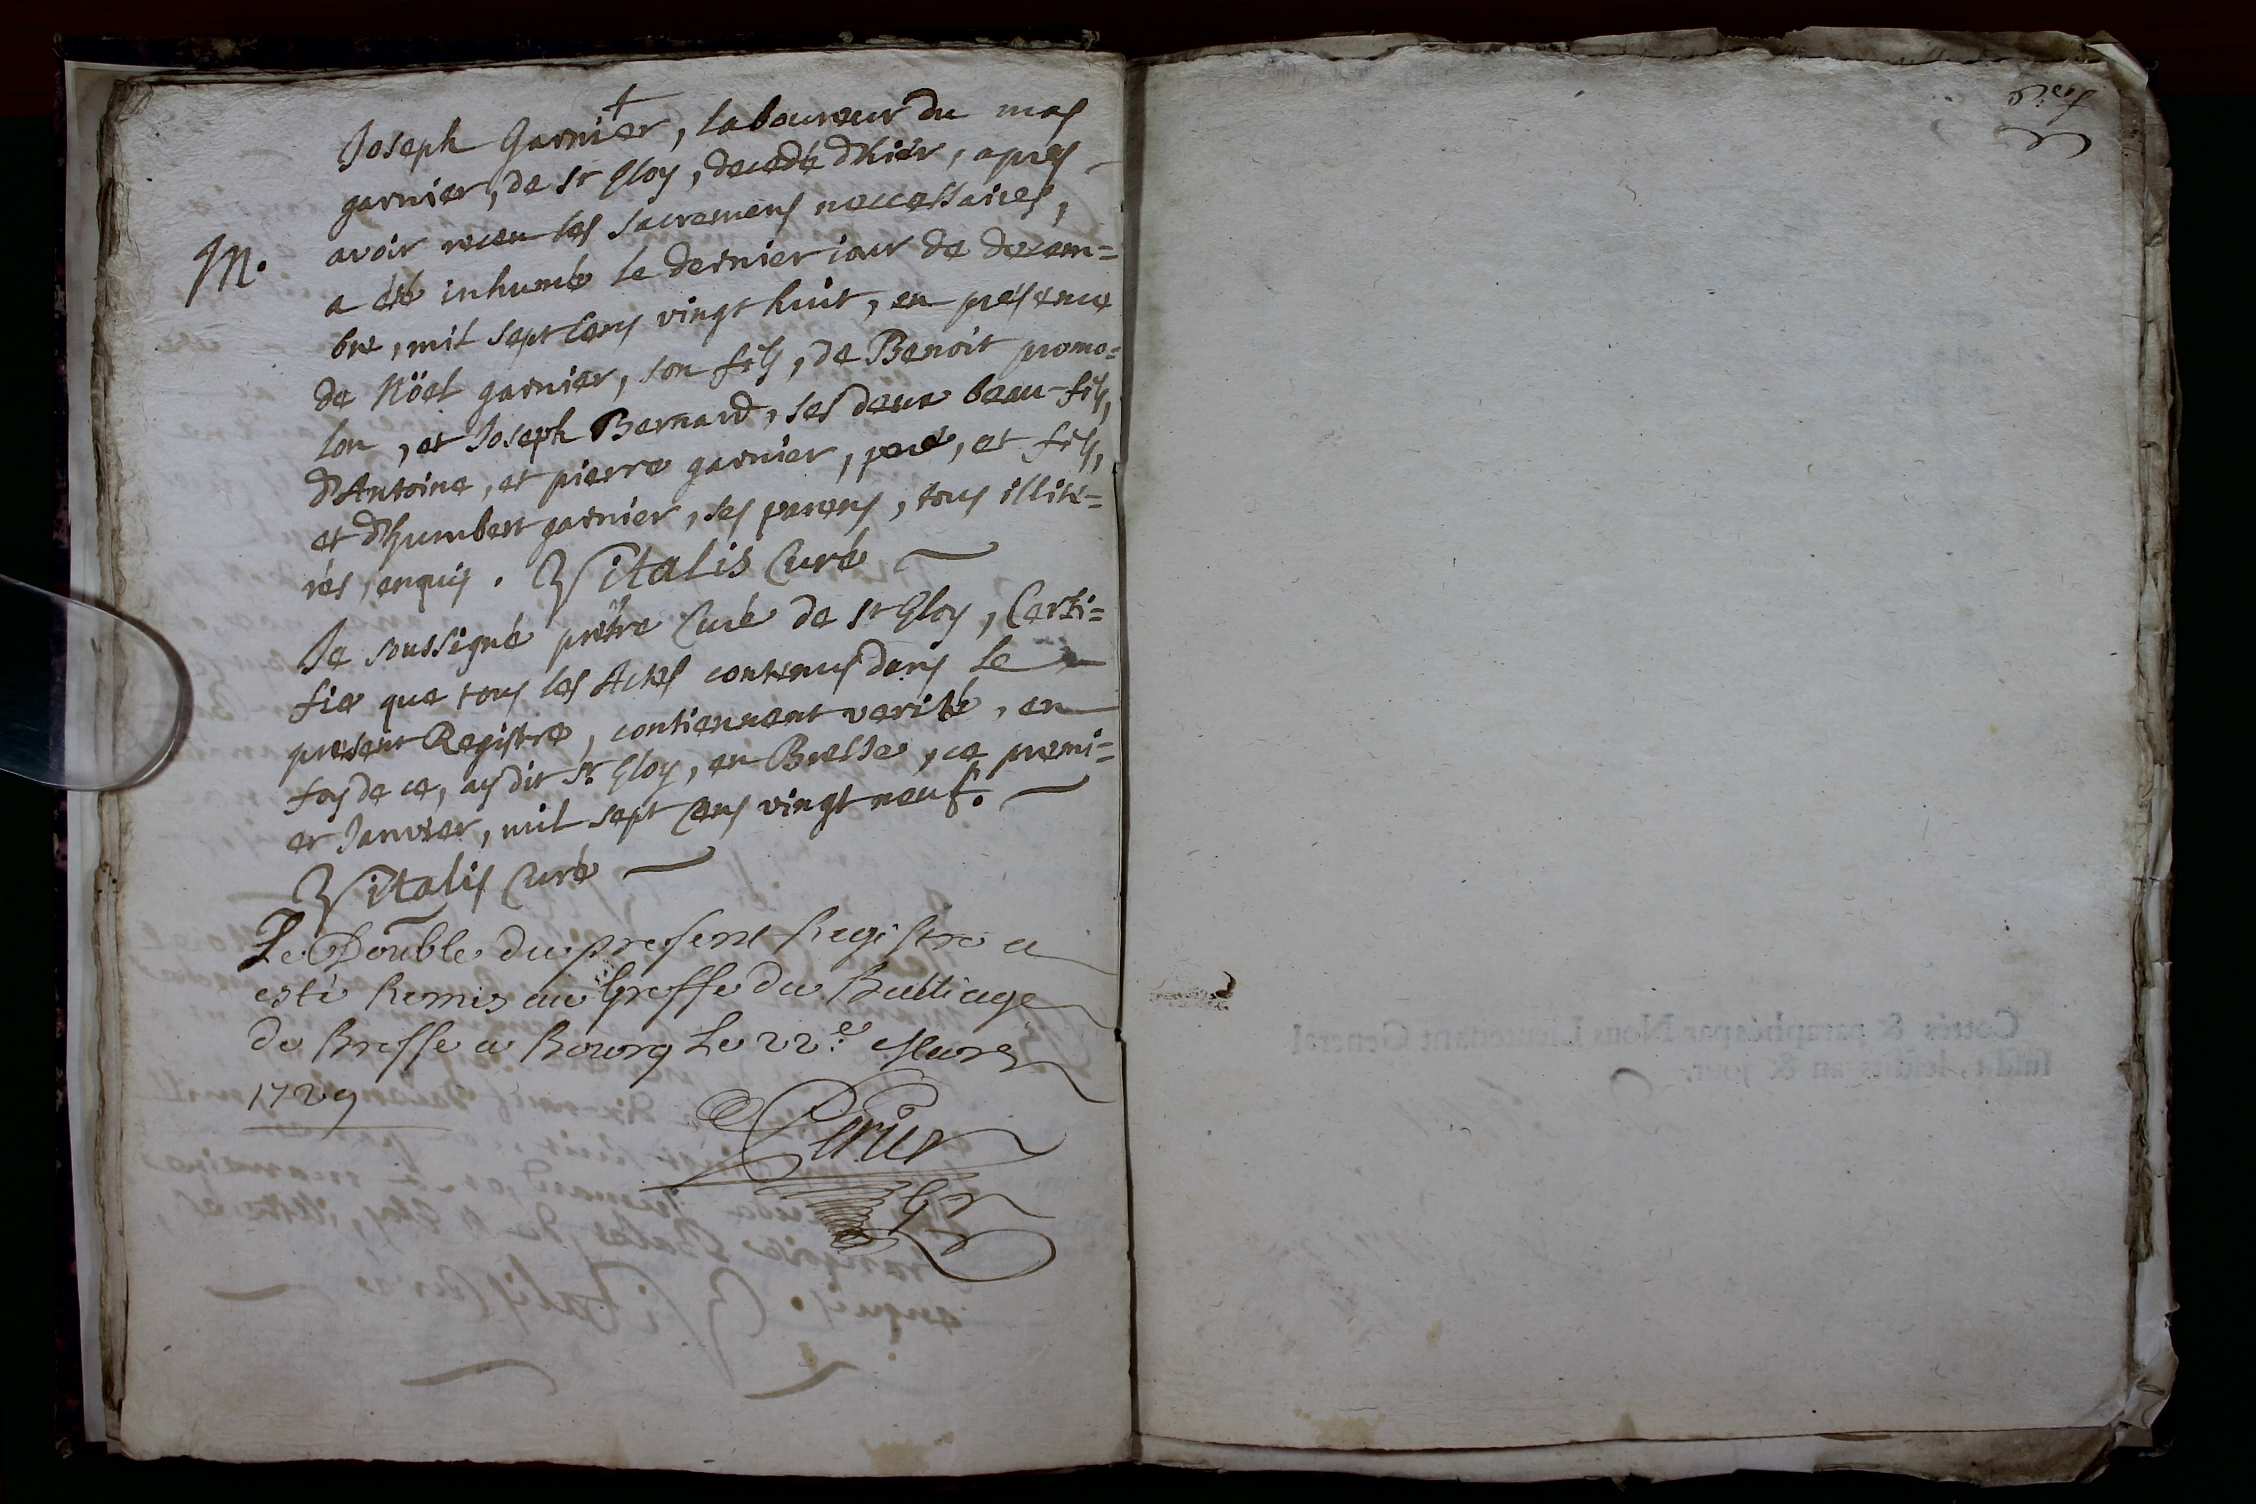 Joseph Garnier, laboureur du mas
garnier, de St Eloy, decedé dhiér, apres
avoir receu les sacremens neccessaires,
M. a été inhumé le dernier iour de decem=
bre, mil sept cens vingt huit, en presence
de Nöel garnier, son fils, de Benoit promo=
lon, et Joseph Bernard, ses deux beau-fils,
d'Antoine, et pierre garnier, pere, et fils,
et dhumbert garnier, ses parens, tous illité=
rés, enquis. Vitalis Curé
Je soussigné prêtre Curé de St Eloy, Certi=
fie que tous les Actes contenus dans le
present Registre, contiennent verité, en
foy de ce, audit St Eloy, en Bresse, ce premi=
er Janvier, mil sept cens vingt neuf.
Vitalis Curé
Le Double du present Registre a
esté Remis au Greffe du Bailliage
de Bresse a Bourg Le 22e. Mars
1729
Perier
Gr
Cottés & paraphés par Nous Lieutenant General
susdit, lesdits an & jour.